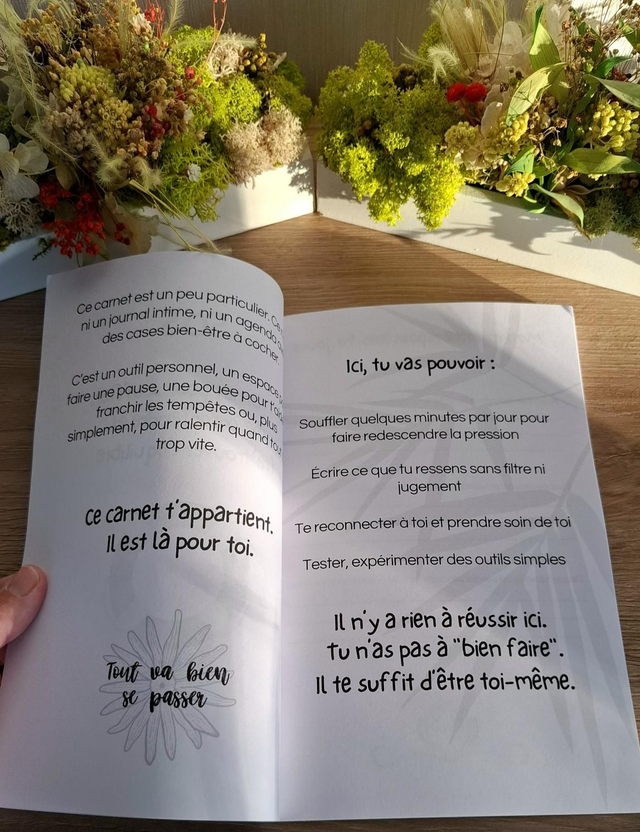 Ce carnet est un peu particulier.
ni un journal intime, ni un agenda
des cases bien-être à cocher
C'est un outil personnel, un espace
faire une pause, une bouée pour
franchir les tempêtes ou, plus
simplement, pour ralentir quand
trop vite.
Ce carnet t'appartient.
Il est là pour toi.
Tout va bien
se passer
Ici, tu vas pouvoir :
Souffler quelques minutes par jour pour
faire redescendre la pression
Écrire ce que tu ressens sans filtre ni
jugement
Te reconnecter à toi et prendre soin de toi
Tester, expérimenter des outils simples
Il n'y a rien à réussir ici.
Tu n'as pas à "bien faire".
Il te suffit d'être toi-même.